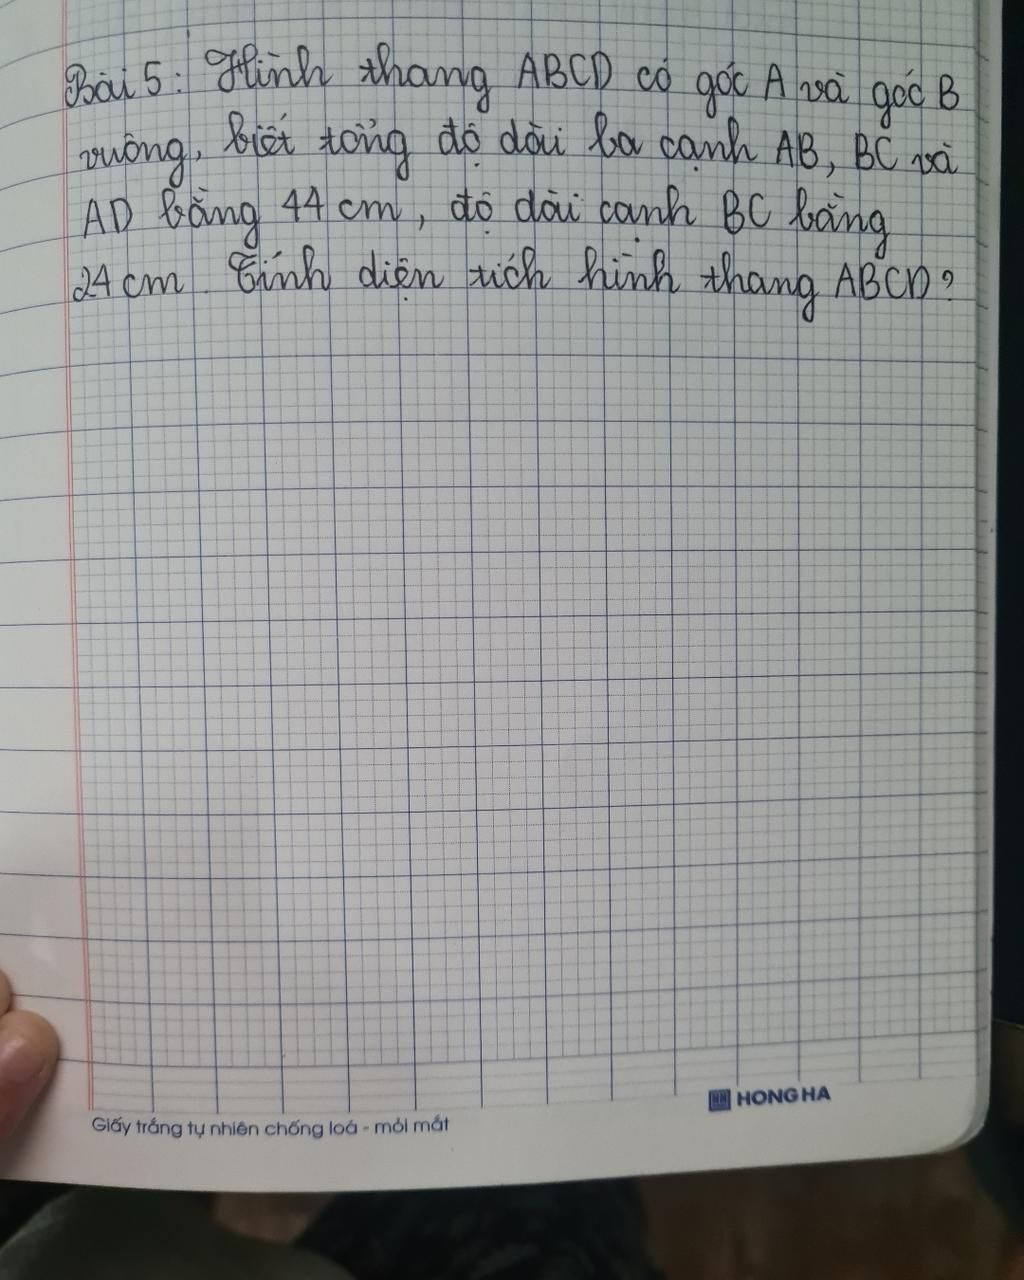 Bài 5: Hình thang ABCD có góc A và góc B
vuông, biết tổng độ dài ba cạnh AB, BC và
AD bằng 44 cm, độ dài cạnh BC bằng
24 cm. Tính diện tích hình thang ABCD?
HH HONG HA
Giấy trắng tự nhiên chống loá - mỏi mắt